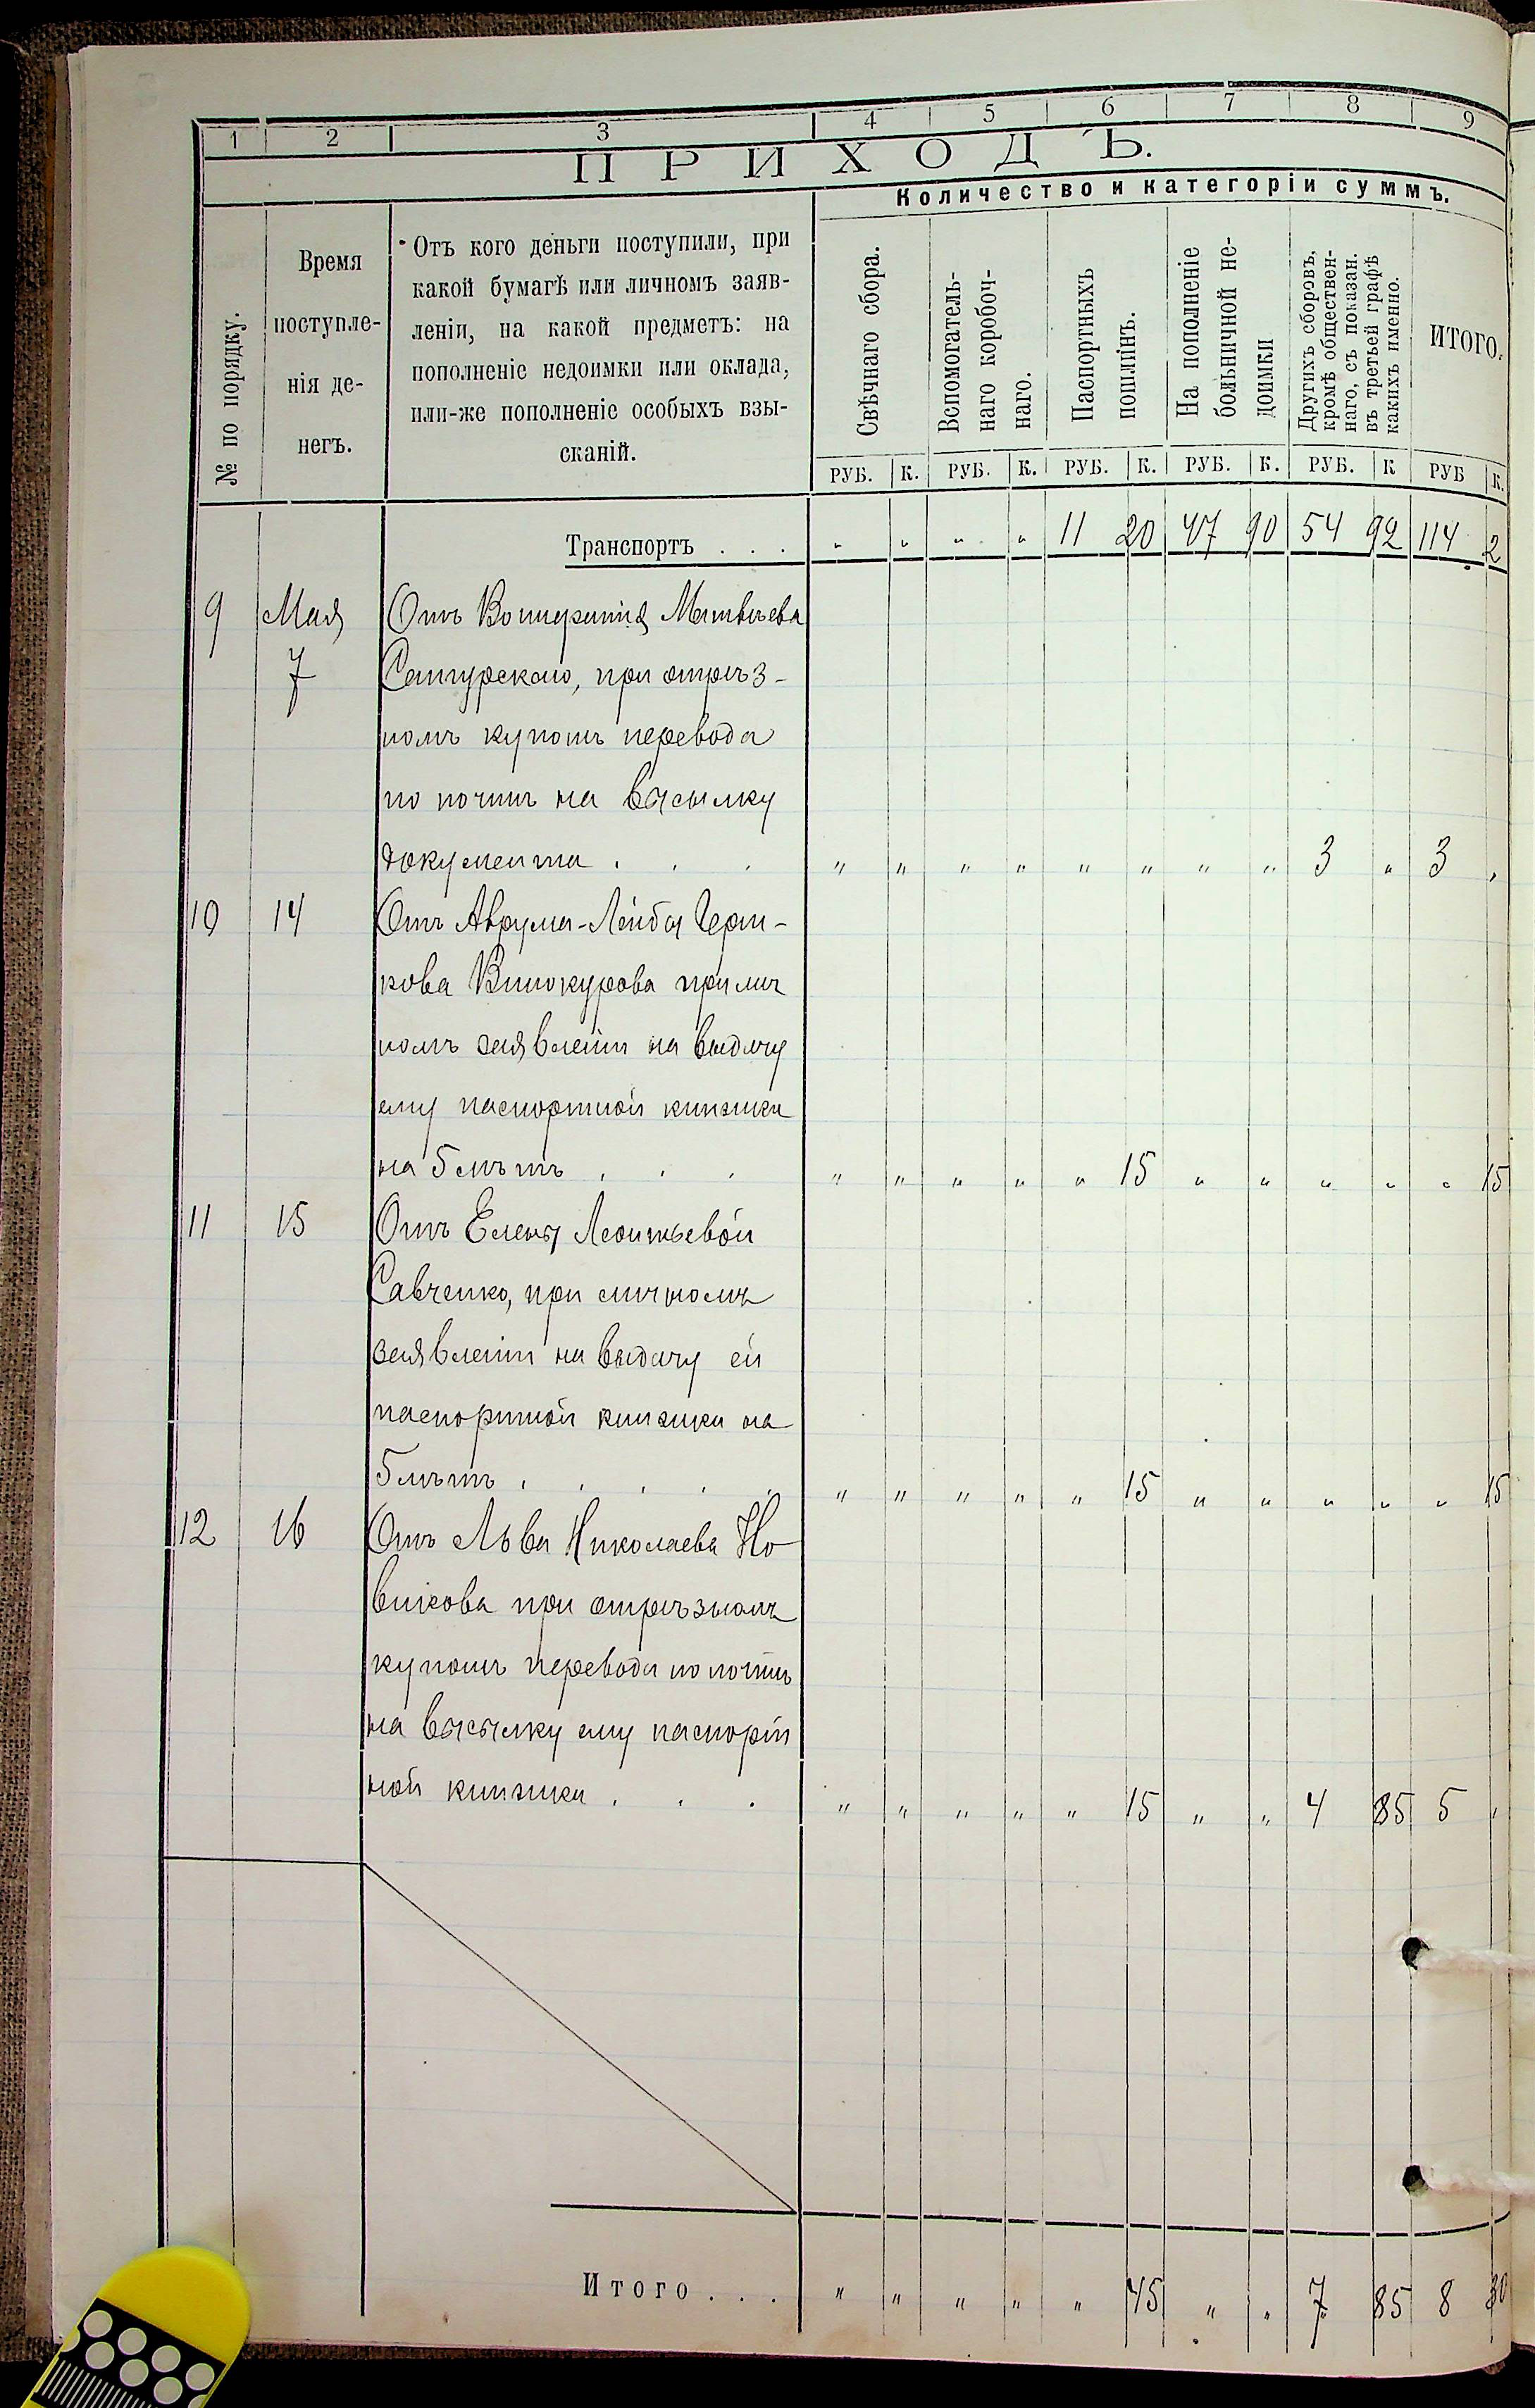 1 2 3 4 5 6 7 8 9
ПРИХОДЪ.
Количество и категоріи суммъ.
№ по порядку.
Время
поступле-
нія де-
негъ.
Отъ кого деньги поступили, при
какой бумагѣ или личномъ заяв-
леніи, на какой предметъ: на
пополненіе недоимки или оклада,
или-же пополненіе особыхъ взы-
сканій.
Свѣчнаго сбора.
Вспомогатель-
наго коробоч-
наго.
Паспортныхъ
пошлинъ.
На пополненіе
больничной не-
доимки
Другихъ сборовъ,
кромѣ обществен-
наго, съ показан.
въ третьей графѣ
какихъ именно.
ИТОГО.
РУБ. К. РУБ. К. РУБ. К. РУБ. К. РУБ. К РУБ К.
Транспортъ . . . " " " " 11 20 47 90 54 92 114 2
9 Мая Отъ Матвѣева
7 при отрѣз-
номъ купонѣ перевода
по почтѣ на высылку
документа . . . " " " " " " " " 3 " 3 "
10 14 Отъ Аврума-Лейбы Герш-
кова Винокурова при лич
номъ заявленіи на выдачу
ему паспортной книжки
на 5 лѣтъ . . . " " " " " 15 " " " " " 15
11 15 Отъ Елены Леонтьевой
Савченко, при личномъ
заявленіи на выдачу ей
паспортной книжки на
5 лѣтъ . . . . . " " " " " 15 " " " " " 15
12 16 Отъ Льва Николаева Но
викова при отрѣзномъ
купонѣ перевода по почтѣ
на высылку ему паспорт
ной книжки . . . " " " " " 15 " " 4 85 5 "
Итого . . . " " " " " 45 " " 7 85 8 30